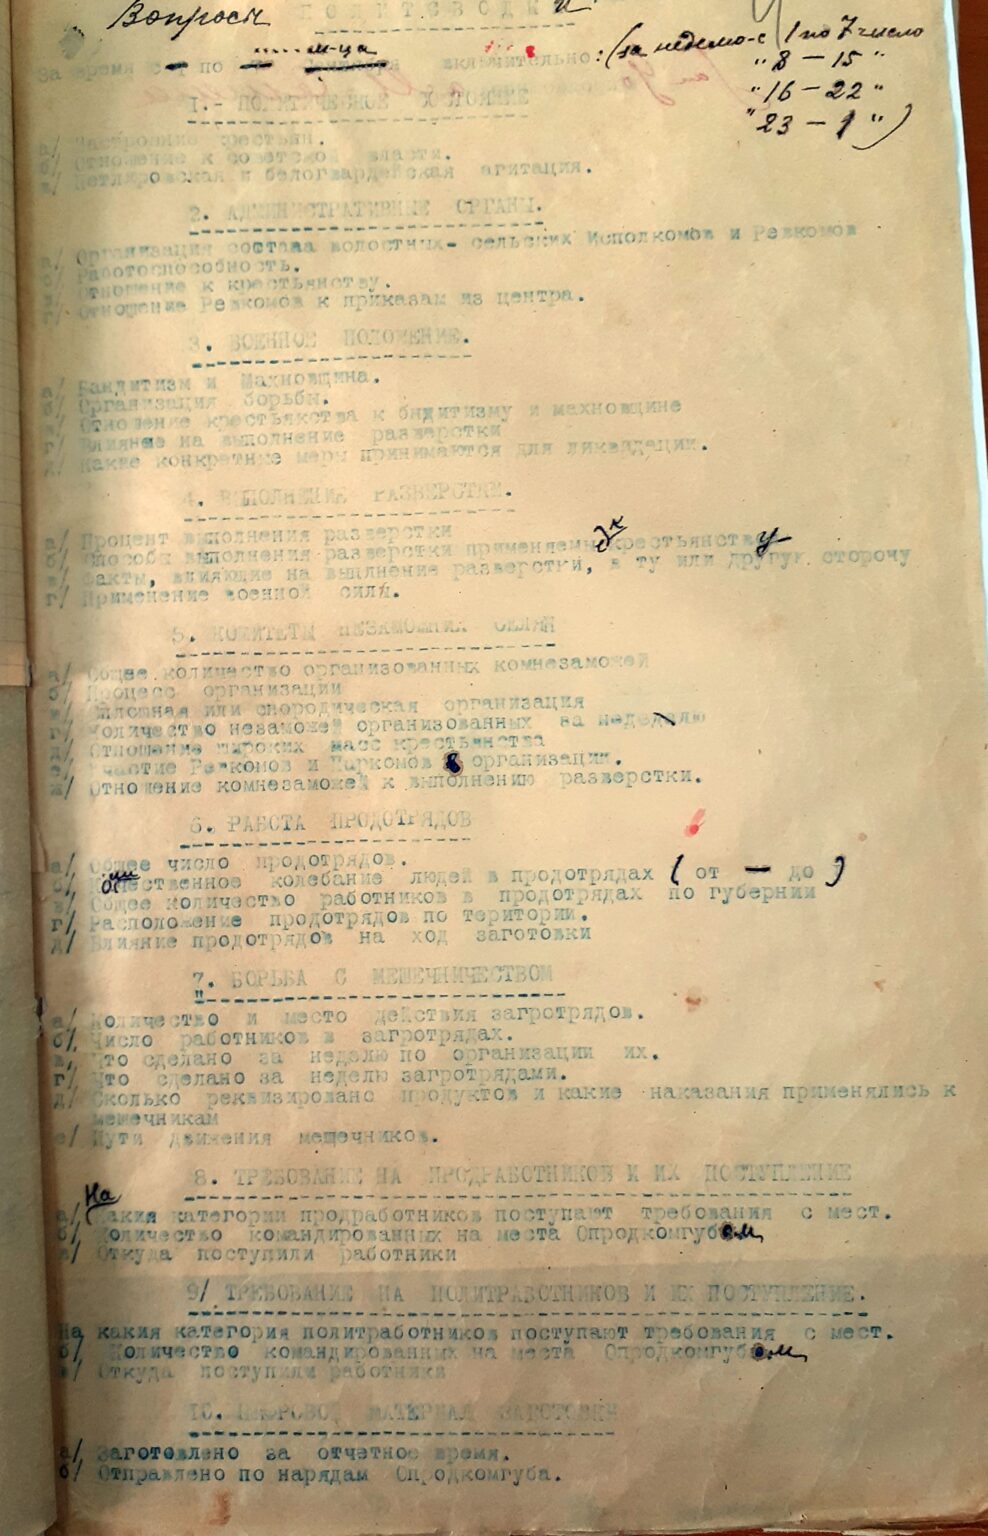 Вопросы ПОЛИТСВОДКИ
м-ца
За время с по включительно: (за неделю-с 1 по 7 число
" 8 — 15 "
" 16 — 22 "
" 23 — 1 " )
1.- ПОЛИТИЧЕСКОЕ СОСТОЯНИЕ
а/ Настроение крестьян.
б/ Отношение к советской власти.
в/ Петлюровская и белогвардейская агитация.
2. АДМИНИСТРАТИВНЫЕ ОРГАНЫ.
а/ Организация состава волостных- сельских Исполкомов и Ревкомов
б/ Работоспособность.
в/ Отношение к крестьянству.
г/ Отношение Ревкомов к приказам из центра.
3. ВОЕННОЕ ПОЛОЖЕНИЕ.
а/ Бандитизм и Махновщина.
б/ Организация борьбы.
в/ Отношение крестьянства к бндитизму и махновщине
г/ Влияние на выполнение разверстки
д/ Какие конкретные меры принимаются для ликвидации.
4. ВЫПОЛНЕНИЕ РАЗВЕРСТКИ.
а/ Процент выполнения разверстки
б/ Способы выполнения разверстки применяемы к крестьянству
в/ Факты, влияющие на выплнение разверстки, в ту или другую сторону
г/ Применение военной силы.
5. КОМИТЕТЫ НЕЗАМОЖНИХ СЕЛЯН
а/ Общее количество организованных комнезаможей
б/ Процесс организации
в/ Сплошная или спородическая организация
г/ Количество незаможей организованных за неделю
д/ Отношение широких масс крестьянства
е/ Участие Ревкомов и Паркомов в организации.
ж/ Отношение комнезаможей к выполнению разверстки.
6. РАБОТА ПРОДОТРЯДОВ
а/ Общее число продотрядов.
б/ колебание людей в продотрядах ( от — до )
в/ Общее количество работников в продотрядах по губернии
г/ Расположение продотрядов по територии.
д/ Влияние продотрядов на ход заготовки
7. БОРЬБА С МЕШЕЧНИЧЕСТВОМ
а/ Количество и место действия загротрядов.
б/ Число работников в загротрядах.
в/ Что сделано за неделю по организации их.
г/ Что сделано за неделю загротрядами.
д/ Сколько реквизировано продуктов и какие наказания применялись к
мешечникам
е/ Пути движения мешечников.
8. ТРЕБОВАНИЕ НА ПРОДРАБОТНИКОВ И ИХ ПОСТУПЛЕНИЕ
а/ На какия категории продработников поступают требования с мест.
б/ Количество командированных на места Опродкомгубом
в/ Откуда поступили работники
9/ ТРЕБОВАНИЕ НА ПОЛИТРАБОТНИКОВ И ИХ ПОСТУПЛЕНИЕ.
На какия категория политработников поступают требования с мест.
б/ Количество командированных на места Опродкомгубом
в/ Откуда поступили работники
10. ЦИФРОВОЙ МАТЕРИАЛ ЗАГОТОВКИ
а/ Заготовлено за отчетное время.
б/ Отправлено по нарядам Опродкомгуба.